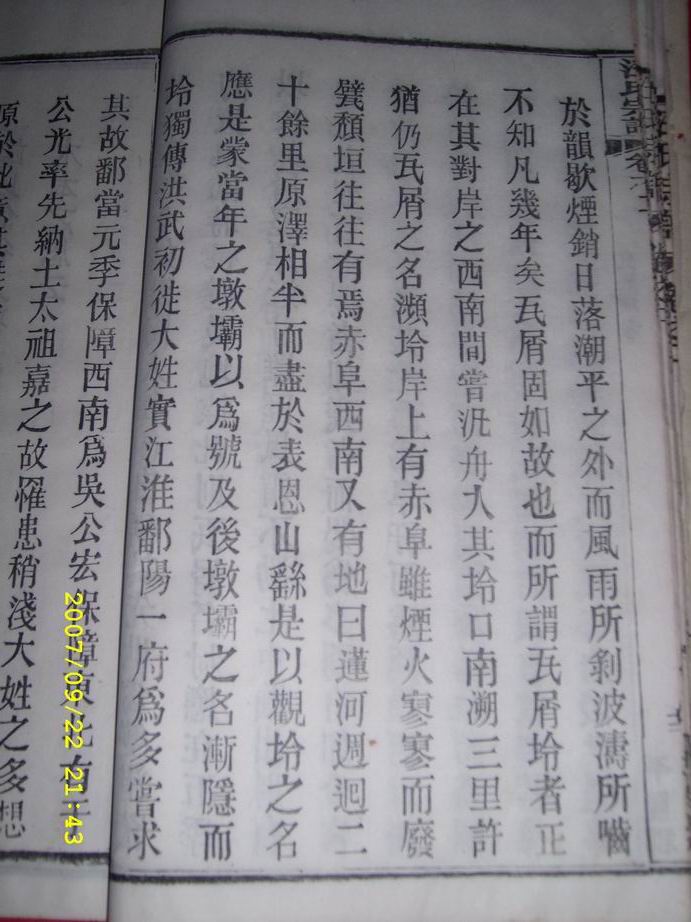 於韻歇煙銷日落潮平之外而風雨所剝波濤所嚙
不知凡幾年矣瓦屑固如故也而所謂瓦屑坽者正
在其對岸之西南間嘗汎舟入其坽口南溯三里許
猶仍瓦屑之名瀕坽岸上有赤阜雖煙火寥寥而廢
甓頹垣往往有焉赤阜西南又有地曰蓮河週迴二
十餘里原澤相半而盡於表恩山繇是以觀坽之名
應是蒙當年之墩壩以爲號及後墩壩之名漸隱而
坽獨傳洪武初徙大姓實江淮鄱陽一府爲多嘗求
其故鄱當元季保障西南爲吳公宏保障東北有于
公光率先納土太祖嘉之故罹患稍淺大姓之多想
原於此
2007/09/22 21:43